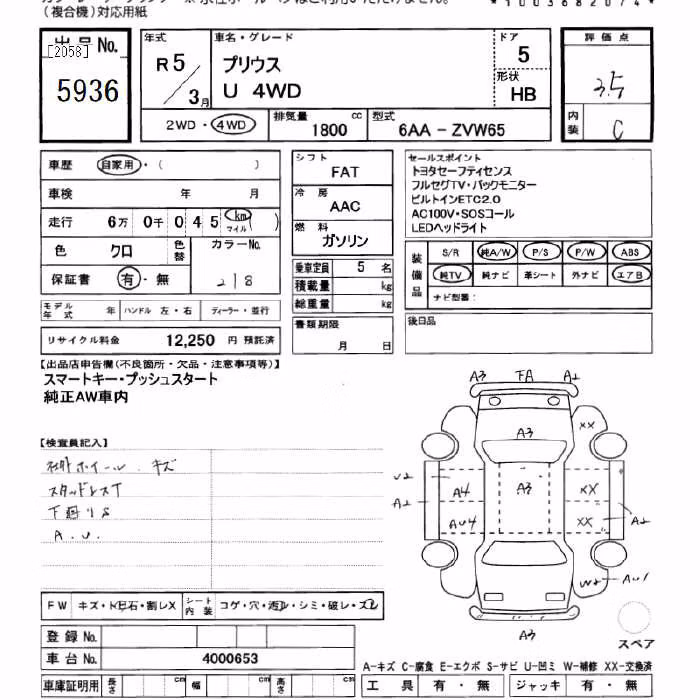 （複合機）対応用紙
*1003682074*
出品No.
[2058]
5936
年式
R5/3月
車名・グレード
プリウス
U 4WD
ドア
5
形状
HB
2WD・4WD
排気量
1800 cc
型式
6AA - ZVW65
評価点
3.5
内装
C
車歴 自家用・( )
車検 年 月
走行 6万 0千 0 4 5 km マイル ( )
色 クロ 色替 カラーNo.
218
保証書 有・無
モデル年式 年 ハンドル 左・右 ディーラー・並行
リサイクル料金 12,250 円 預託済
シフト
FAT
冷房
AAC
燃料
ガソリン
乗車定員 5 名
積載量 kg
総重量 kg
書類期限
月 日
セールスポイント
トヨタセーフティセンス
フルセグTV・バックモニター
ビルトインETC2.0
AC100V・SOSコール
LEDヘッドライト
装備品
S/R 純A/W P/S P/W ABS
純TV 純ナビ 革シート 外ナビ エアB
ナビ型番：
後日品
【出品店申告欄(不良箇所・欠品・注意事項等)】
スマートキー・プッシュスタート
純正AW車内
【検査員記入】
社外ホイール キズ
スタッドレスT
下廻りS
A.U.
A3 FA A2
A3
XX
U2
A2
A4
A3
XX
AU4
XX
A2
W2
AU1
A3
スペア
FW キズ・ト石・割レX シート内装 コゲ・穴・汚レ・シミ・破レ・ズレ
登録No.
車台No. 4000653
車庫証明用 長さ cm 幅 cm 高さ cm
A-キズ C-腐食 E-エクボ S-サビ U-凹ミ W-補修 XX-交換済
工具 有・無 ジャッキ 有・無